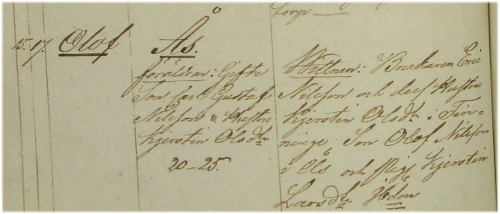 torp —
Å
15. 17. Olof
Ås.
föräldrar: Gifte
Son Gustaf
Nilsson & Hustru
Kjerstin Olsdr
20–25.
Vittnen: Brukaren Eric
Nilsson och dess Hustru
Kjerstin Olsdr i
Son Olof Nilsson
i Ås och Pig. Kjerstin
Larsdr